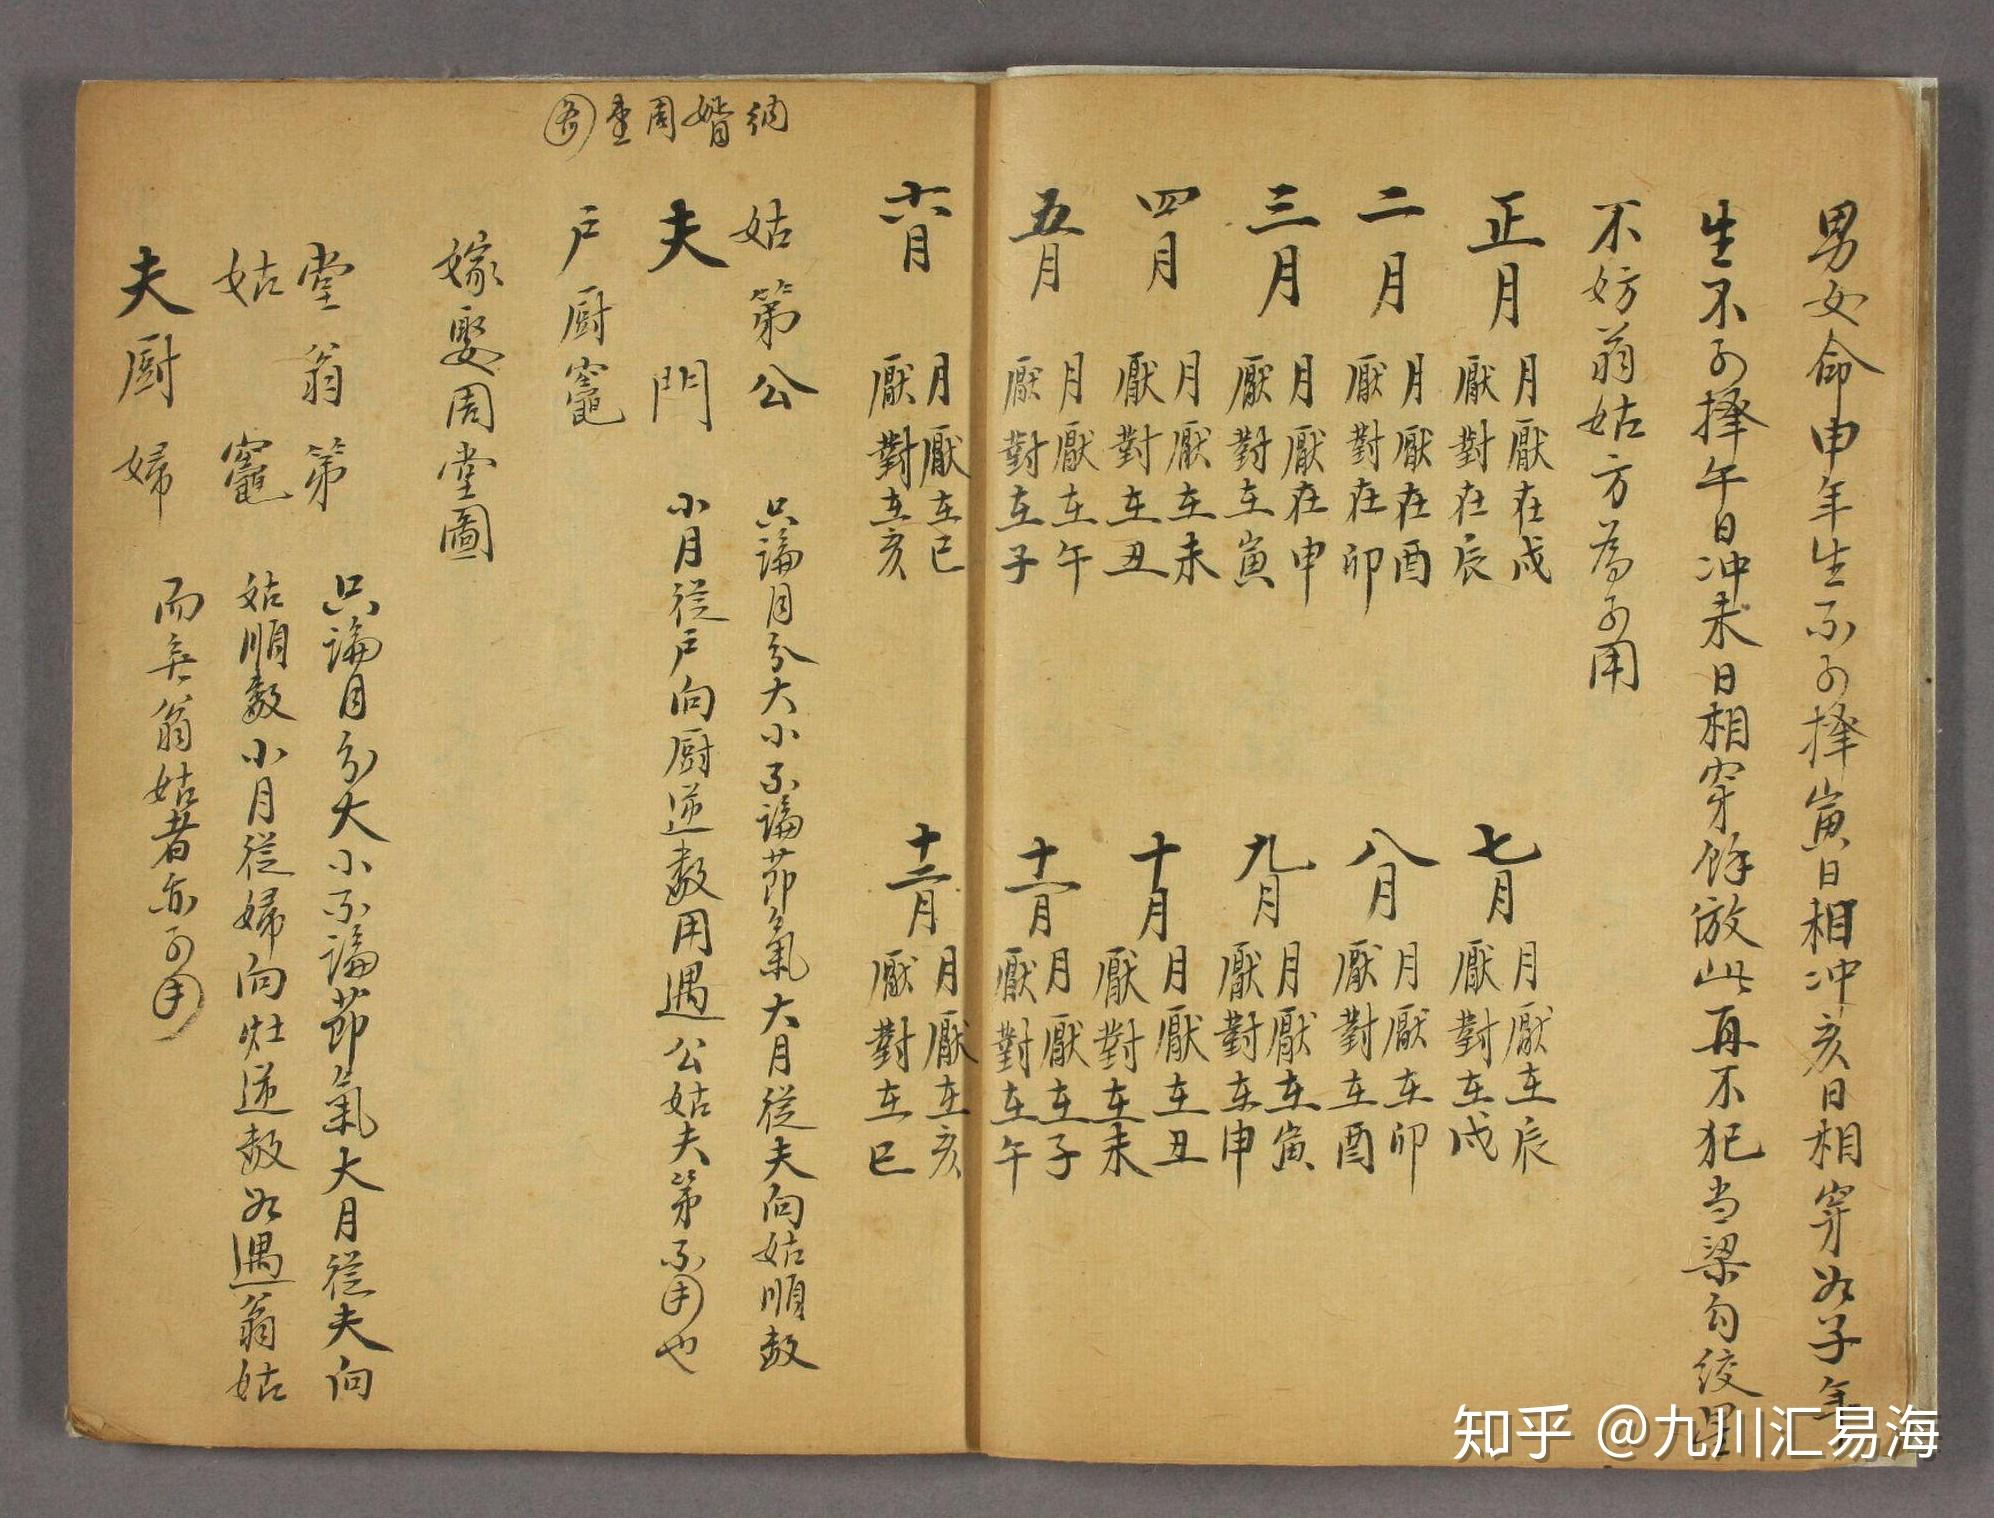 男女命申年生不可擇寅日相冲亥日相穿如子年
生不可擇午日冲未日相穿餘倣此再不犯当梁勾绞星
不妨翁姑方為可用
正月 月厭在戌 厭對在辰
七月 月厭在辰 厭對在戌
二月 月厭在酉 厭對在卯
八月 月厭在卯 厭對在酉
三月 月厭在申 厭對在寅
九月 月厭在寅 厭對在申
四月 月厭在未 厭對在丑
十月 月厭在丑 厭對在未
五月 月厭在午 厭對在子
十一月 月厭在子 厭對在午
六月 月厭在巳 厭對在亥
十二月 月厭在亥 厭對在巳
納婿周堂
姑 第 公 只論月分大小不論节氣大月從夫向姑順数
夫 門 小月從戶向厨逆数用遇公姑夫第不用也
戶 厨 竈
嫁娶周堂圖
堂 翁 第 只論月分大小不論节氣大月從夫向
姑 竈 姑順数小月從婦向灶逆数如遇翁姑
夫 厨 婦 而無翁姑者亦可用
知乎 @九川汇易海